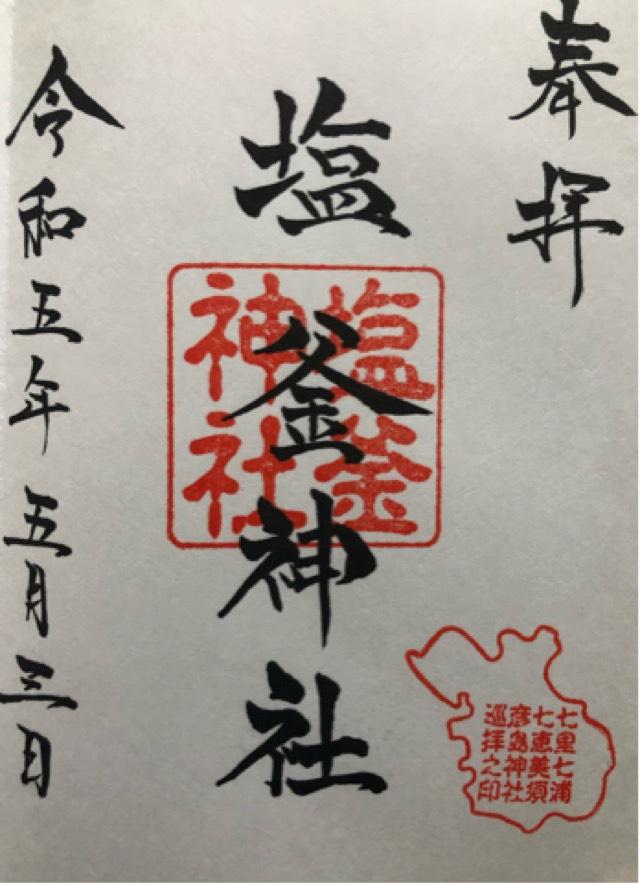 奉拝
塩釜神社
塩釜
神社
令和五年五月三日
七里七浦
七恵美須
彦島神社
巡拝之印